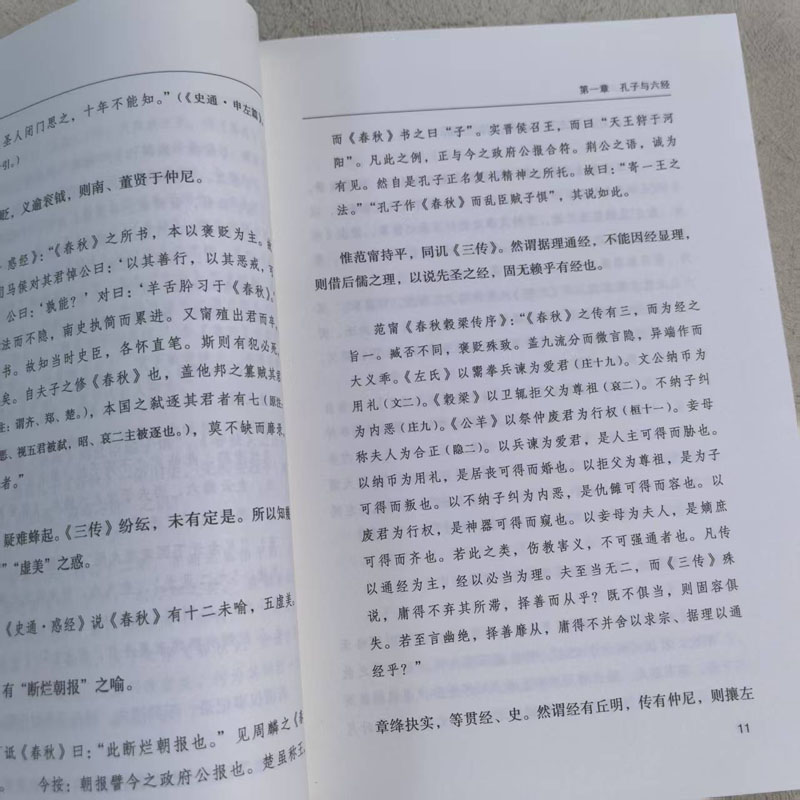 圣人闭门思之，十年不能知。”（《史通·申左篇》
引。）
贬，义逾衮钺，则南、董贤于仲尼。
惑经》：“《春秋》之所书，本以褒贬为主。
司马侯对其君悼公曰：‘以其善行，以其恶戒，可
公曰：‘孰能？’对曰：‘羊舌肸习于《春秋》。
法而不隐，南史执简而累进。又甯殖出君而
书。故知当时史臣，各怀直笔。斯则有犯必死
矣。自夫子之修《春秋》也，盖他邦之篡贼其
注：谓齐、郑、楚。），本国之弑逐其君者有七（原
恶、视五君被弑，昭、哀二主被逐也。），莫不缺而靡录
者。”
疑难蜂起。《三传》纷纭，未有定是。所以知
“虚美”之惑。
《史通·惑经》说《春秋》有十二未喻，五虚美
有“断烂朝报”之喻。
诋《春秋》曰：“此断烂朝报也。”见周麟之《
今按：朝报譬今之政府公报也。楚虽称王
第一章 孔子与六经
而《春秋》书之曰“子”。实晋侯召王，而曰“天王狩于河
阳”。凡此之例，正与今之政府公报合符。荆公之语，诚为
有见。然自是孔子正名复礼精神之所托。故曰：“寄一王之
法。”“孔子作《春秋》而乱臣贼子惧”，其说如此。
惟范甯持平，同讥《三传》。然谓据理通经，不能因经显理，
则借后儒之理，以说先圣之经，固无赖乎有经也。
范甯《春秋穀梁传序》：“《春秋》之传有三，而为经之
旨一。臧否不同，褒贬殊致。盖九流分而微言隐，异端作而
大义乖。《左氏》以鬻拳兵谏为爱君（庄十九）。文公纳币为
用礼（文二）。《穀梁》以卫辄拒父为尊祖（哀二）。不纳子纠
为内恶（庄九）。《公羊》以祭仲废君为行权（桓十一）。妾母
称夫人为合正（隐二）。以兵谏为爱君，是人主可得而胁也。
以纳币为用礼，是居丧可得而婚也。以拒父为尊祖，是为子
可得而叛也。以不纳子纠为内恶，是仇雠可得而容也。以
废君为行权，是神器可得而窥也。以妾母为夫人，是嫡庶
可得而齐也。若此之类，伤教害义，不可强通者也。凡传
以通经为主，经以必当为理。夫至当无二，而《三传》殊
说，庸得不弃其所滞，择善而从乎？既不俱当，则固容俱
失。若至言幽绝，择善靡从，庸得不并舍以求宗、据理以通
经乎？”
章绛抉实，等贯经、史。然谓经有丘明，传有仲尼，则攘左
11